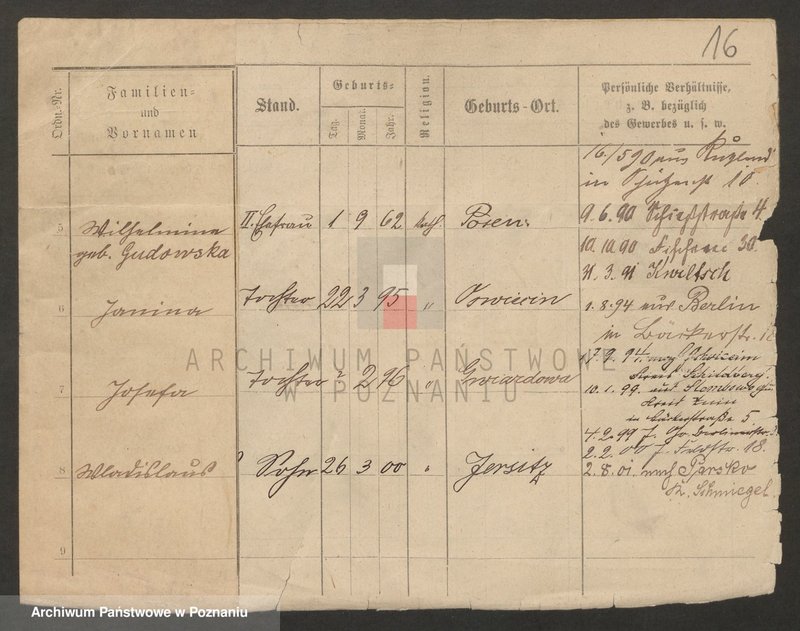 16
Ordn.-Nr.
Familien-
und
Vornamen
Stand.
Geburts-
Tag.
Monat.
Jahr.
Religion.
Geburts-Ort.
Persönliche Verhältnisse,
z. B. bezüglich
des Gewerbes u. s. w.
16/5 90 aus
in 10.
5 Wilhelmine II. Ehefrau 1 9 62 kath. Posen.
geb. Gudowska
9. 6. 90 Schießstraße 4.
10. 10. 90 Fischerei 30.
31. 3. 91 Kwiltsch
6 Janina Tochter 22 3 95 " Oswiecin
1. 8. 94 aus Berlin
in Bäckerstr. 18
17. 9. 94. nach
Kreis Schildberg.
7 Josefa Tochter 2 96 " Gwiazdowa
10. 1. 99. aus
Kreis Znin
in Bäckerstraße 5
4. 2. 99
2. 2. 00 Feldstr. 18.
8 Wladislaus Sohn 26 3 00 " Jersitz
2. 8. 01. nach Parsko
Kr. Schmiegel.
9
ARCHIWUM PAŃSTWOWE
W POZNANIU
Archiwum Państwowe w Poznaniu